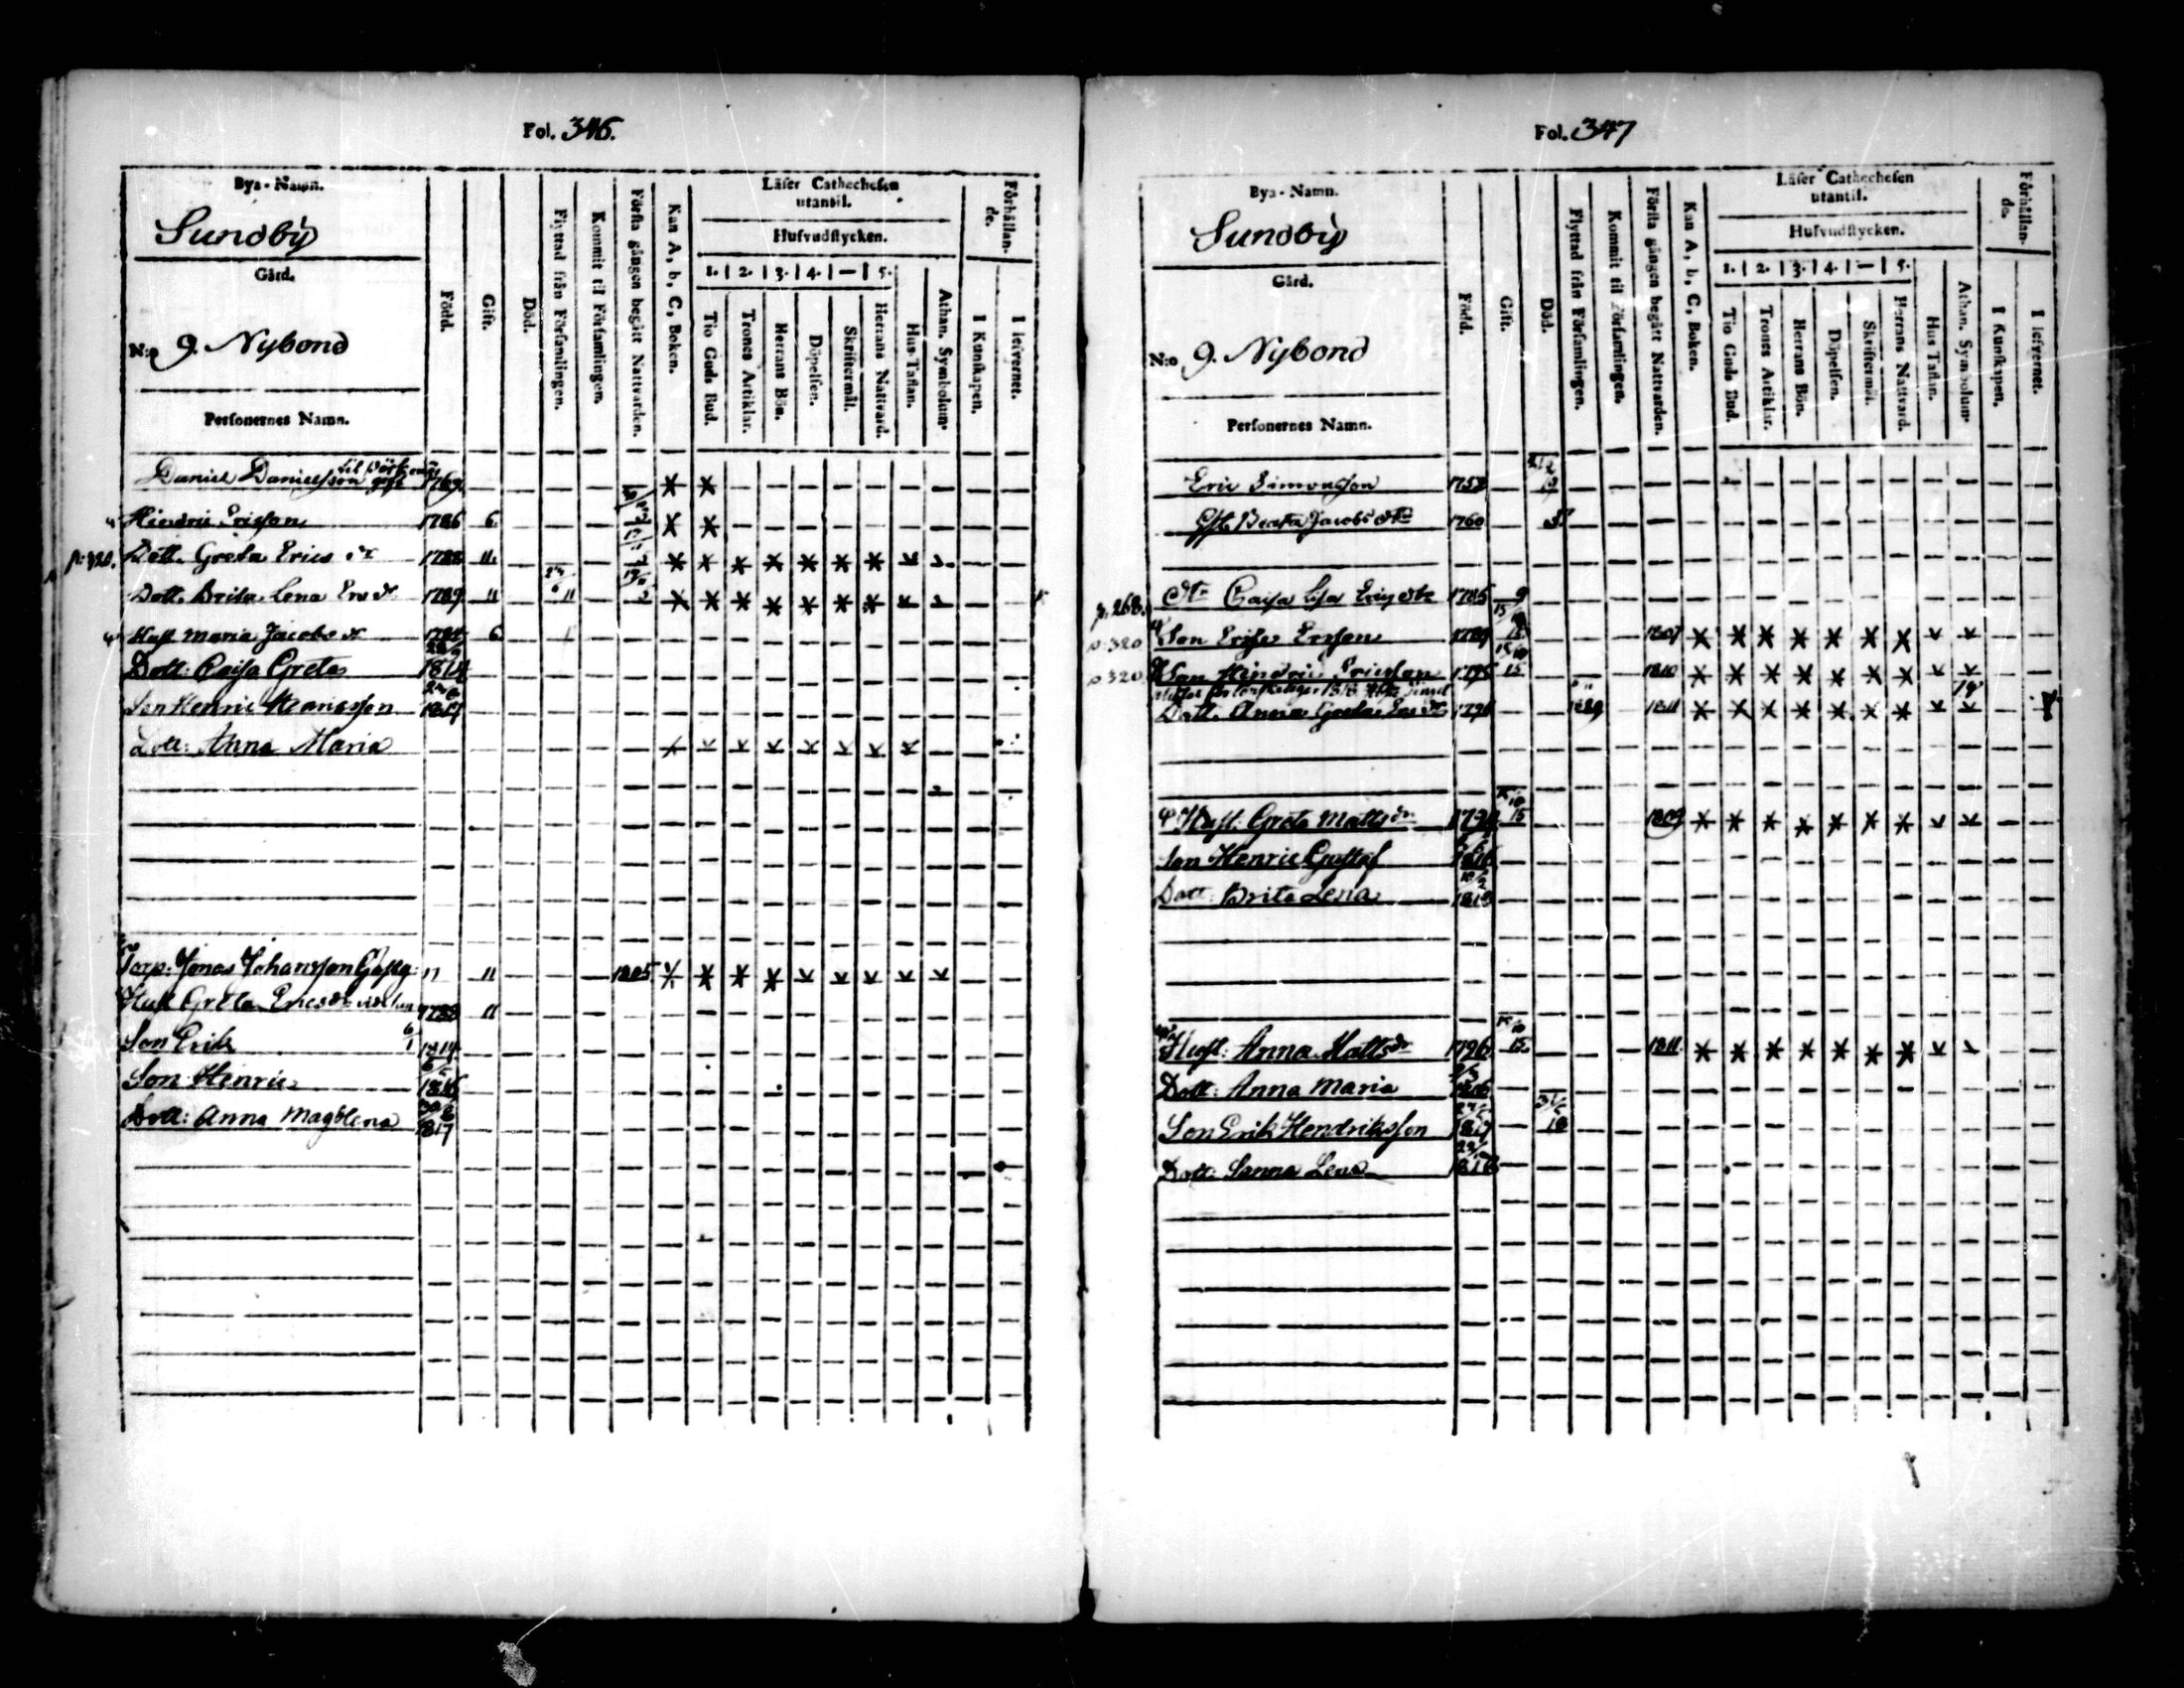 Fol. 346.
Bya-Namn.
Sundby
Gård.
N:o 9. Nybond
Personernes Namn.
Född.
Gift.
Död.
Flyttad från Församlingen.
Kommit til Församlingen.
Första gången begått Nattvarden.
Kan A, b, C, Boken.
Läser Cathechesen utantil.
Hufvudstycken.
1. 2. 3. 4. — 5.
Tio Guds Bud.
Trones Artiklar.
Herrans Bön.
Döpelsen.
Skriftermål.
Herrans Nattvard.
Hus-Taflan.
Athan. Symbolum.
Förhållande.
I Kunskapen.
I lefvernet.
Daniel Danielsson 1769
Hindric Ericsson 1786 6
p. 320. Dott. Greta Erics dr 1788 11
Dott. Brita Lena Ers dr 1789 11
Hust Maria Jacobs dr 6
Dott: Caisa Greta 1814
Son Henric Henricsson 1817
Dott: Anna Maria
Torp: Jonas Johansson 11 1805
Hust Greta Ericsdr 1788 11
Son Erik 6/1 1814
Son Henric 1816
Dott: Anna Magdlena 1817
Fol. 347
Bya-Namn.
Sundby
Gård.
N:o 9. Nybond
Personernes Namn.
Född.
Gift.
Död.
Flyttad från Församlingen.
Kommit til Församlingen.
Första gången begått Nattvarden.
Kan A, b, C, Boken.
Läser Cathechesen utantil.
Hufvudstycken.
1. 2. 3. 4. — 5.
Tio Guds Bud.
Trones Artiklar.
Herrans Bön.
Döpelsen.
Skriftermål.
Herrans Nattvard.
Hus Taflan.
Athan. Symbolum.
Förhållande.
I Kunskapen.
I lefvernet.
Eric Simonsson
Beata Jacobs dtr 1760
p. 268. dtr Caisa Lisa Ericsdtr 1785 9
p. 320 Son Eric Ersson 1789 15 1807
p. 320 Son Hindric Ericsson 1795 15/10 15 1810
Dott. Anna Greta Ers dr 1811
Hust. Greta Mattsdr 15/10 15 1809
Son Henric Gustaf 1816
Dott: Brita Lena
Hust: Anna Mattsdr 1796 15/10 15 1811
Dott: Anna Maria 1816
Son Erik Hendriksson 1817
Dott: Sanna Lena 1818